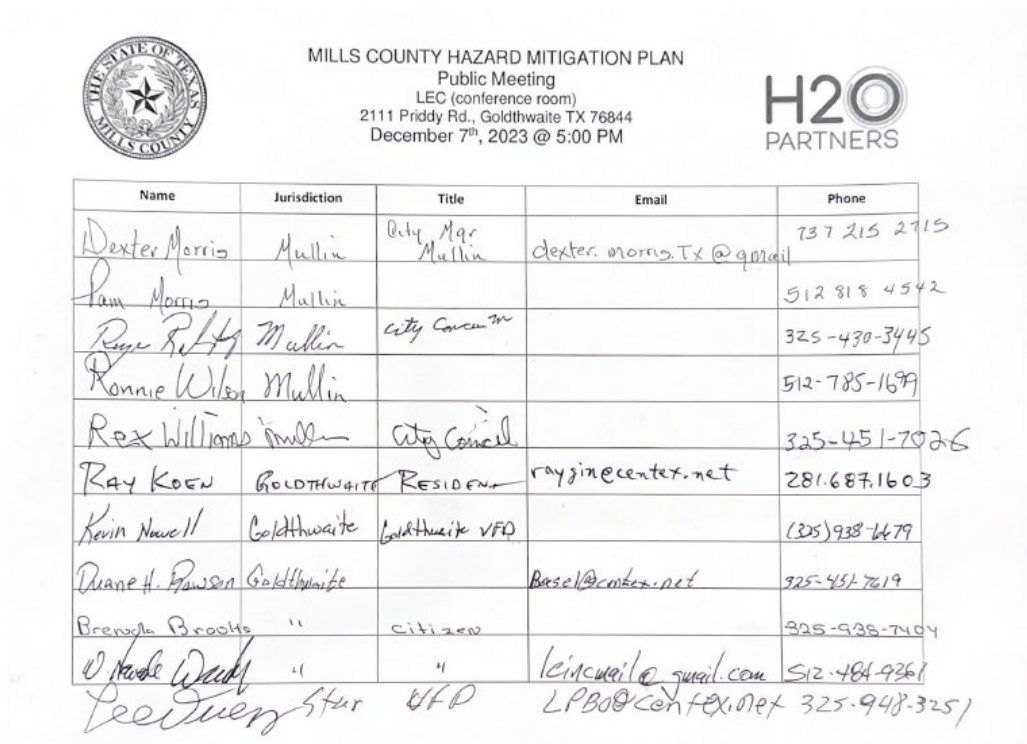 THE STATE OF TEXAS
MILLS COUNTY
MILLS COUNTY HAZARD MITIGATION PLAN
Public Meeting
LEC (conference room)
2111 Priddy Rd., Goldthwaite TX 76844
December 7th, 2023 @ 5:00 PM
H2O
PARTNERS
Name Jurisdiction Title Email Phone
Dexter Morris Mullin City Mgr Mullin dexter.morris.Tx@gmail 737 215 2715
Pam Morris Mullin 512 818 4542
Mullin City 325-430-3445
Ronnie Wilson Mullin 512-785-1699
Rex Williams Mullin City Council 325-451-7026
RAY KOEN GOLDTHWAITE RESIDENT raygin@centex.net 281.687.1603
Kevin Newell Goldthwaite Goldthwaite VFD (325)938-6679
Duane H. Goldthwaite 325-451-7619
Brenda Brooks " citizen 325-938-7404
" " leincmail@gmail.com 512-484-9361
Star VFD LPBO@centex.net 325-948-3251